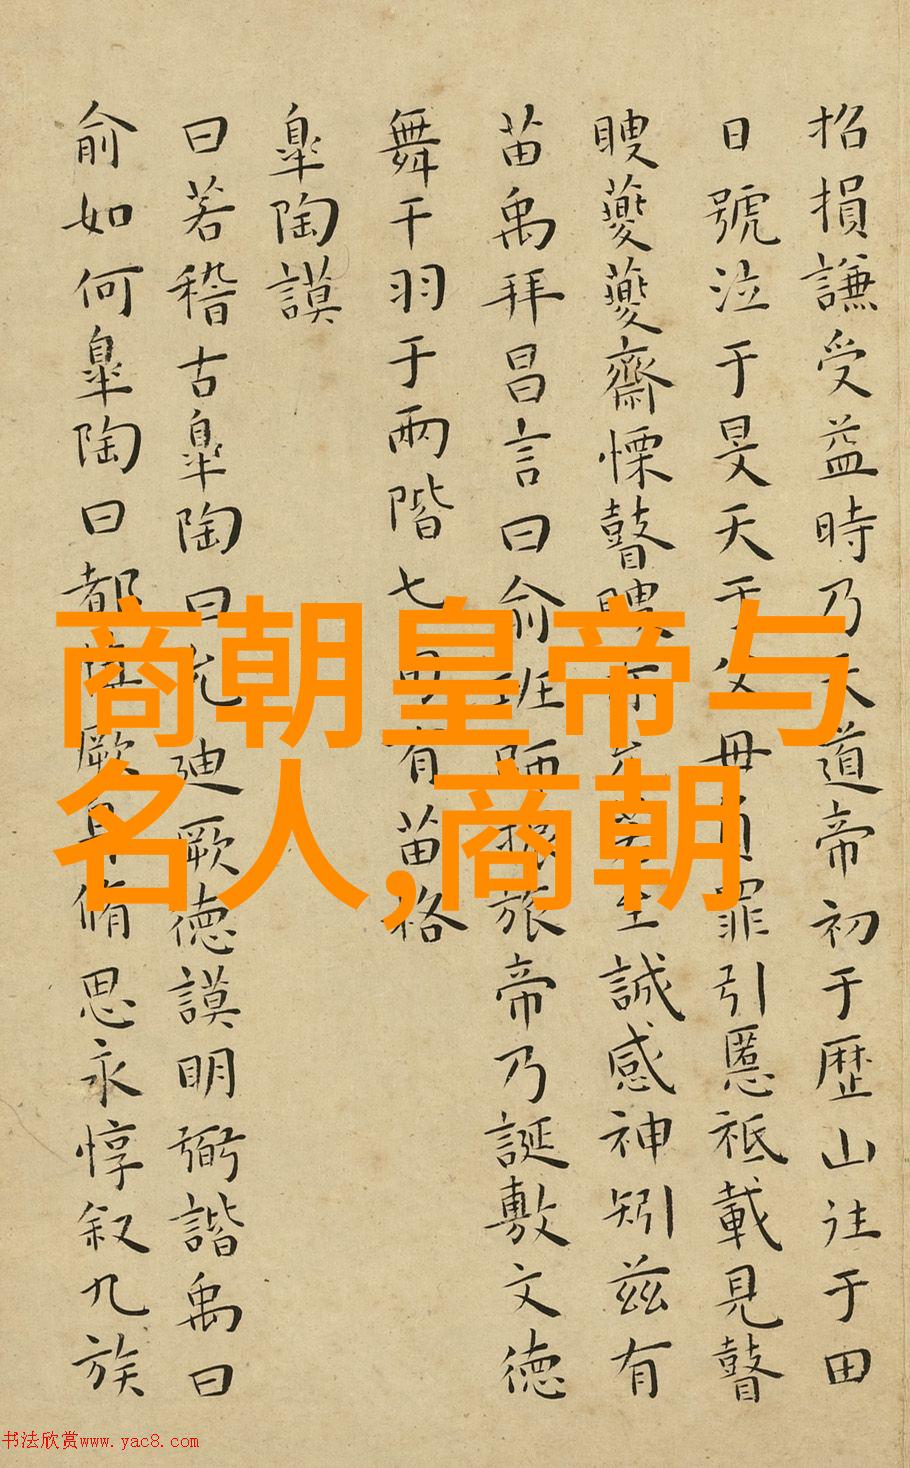 招損謙受益時乃天道帝初于歴山往于田
日號泣于旻天于父母負罪引慝祗載見瞽
瞍夔夔齋慄瞽瞍亦至誠感神矧茲有
苗禹拜昌言曰俞班師振旅帝乃誕敷文德
舞干羽于兩階七旬有苗格
皐陶謨
曰若稽古皐陶曰允迪厥德謨明弼諧禹曰
俞如何皐陶曰都慎厥身脩思永惇叙九族
商朝皇帝与
名人,商朝
书法欣赏www.yac8.com